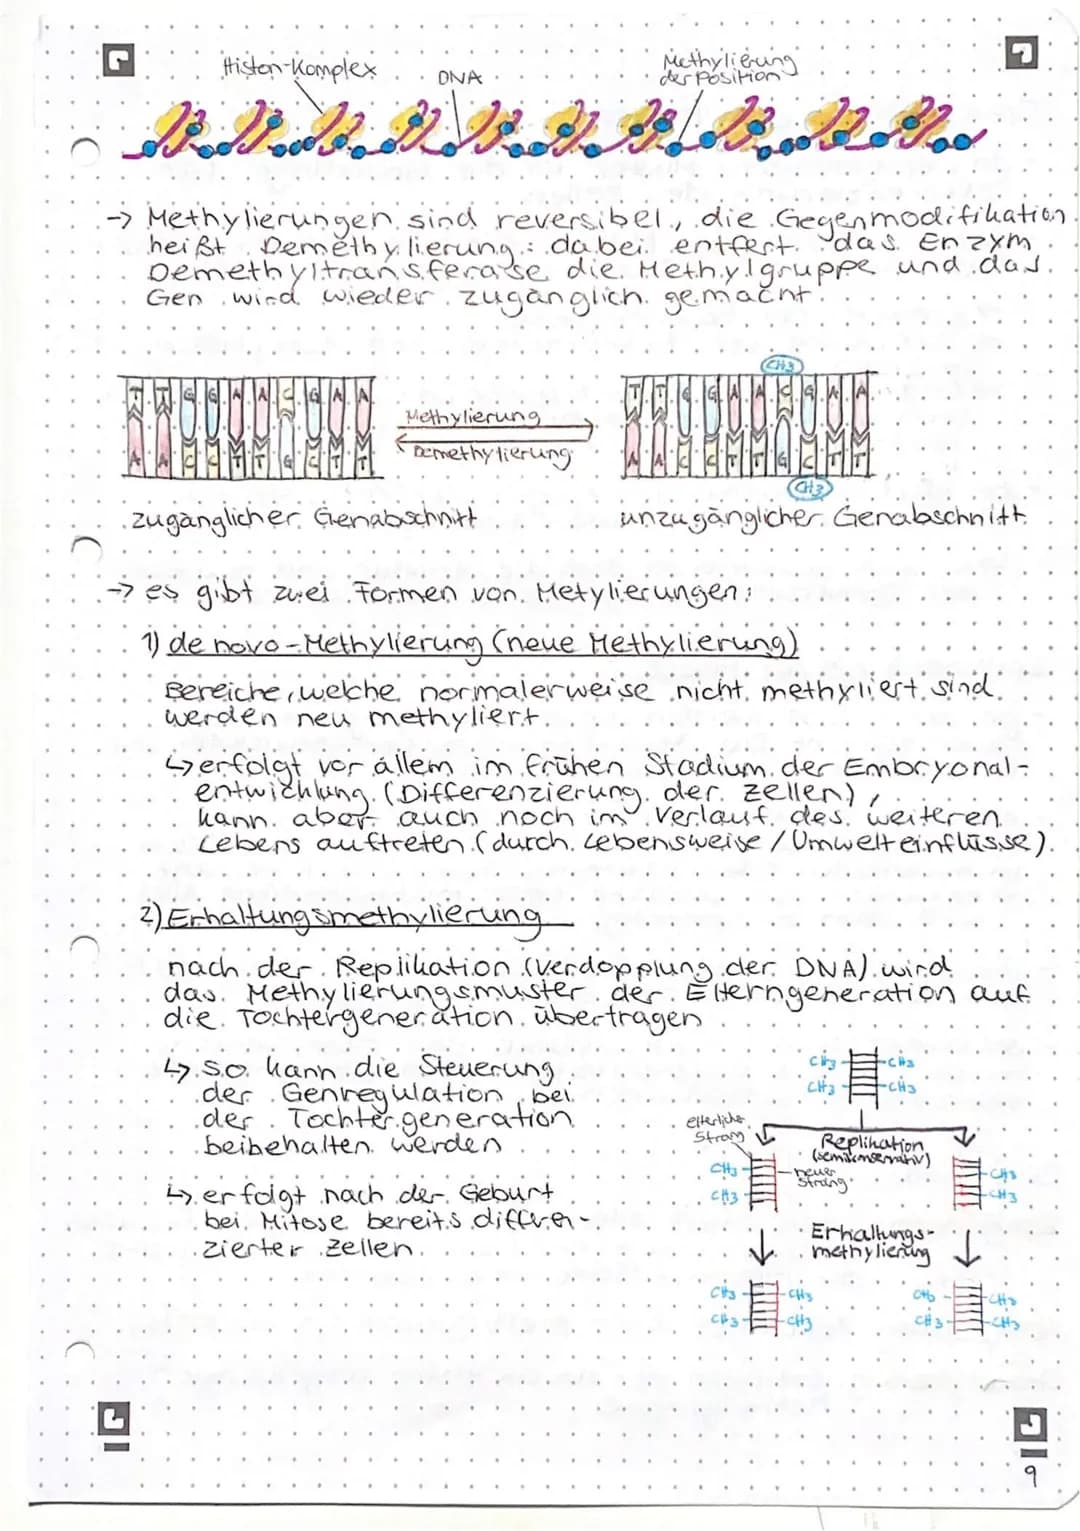 Histon-Komplex
DNA
Methylierung
der Position
→ Methylierungen sind reversibel, die Gegenmodifikation
heißt Demethylierung: dabei entfert das Enzym
Demethyltransferase die Methylgruppe und das
Gen wird wieder zugänglich gemacht.
CH3
T T G G A A C G A A
T T G G A A C G A A
Methylierung
Demethylierung
A A C C T T G C T T
A A C C T T G C T T
CH3
zugänglicher Genabschnitt
unzugänglicher Genabschnitt
→ es gibt zwei Formen von Metylierungen:
1) de novo-Methylierung (neue Methylierung)
Bereiche, welche normalerweise nicht methyliert sind
werden neu methyliert.
↳ erfolgt vor allem im frühen Stadium der Embryonal-
entwicklung (Differenzierung der Zellen),
kann aber auch noch im Verlauf des weiteren
Lebens auftreten (durch Lebensweise / Umwelteinflüsse).
2) Erhaltungsmethylierung
nach der Replikation (Verdopplung der DNA) wird
das Methylierungsmuster der Elterngeneration auf
die Tochtergeneration übertragen
↳ so kann die Steuerung
der Genregulation bei
der Tochtergeneration
beibehalten werden
↳ erfolgt nach der Geburt
bei Mitose bereits differen-
zierter Zellen.
CH3 CH3
CH3 CH3
elterlicher
Strang
Replikation
(semikonservativ)
CH3
neuer
Strang
CH3
CH3
CH3
Erhaltungs-
methylierung
CH3 CH3 CH3 CH3
CH3 CH3 CH3 CH3
9